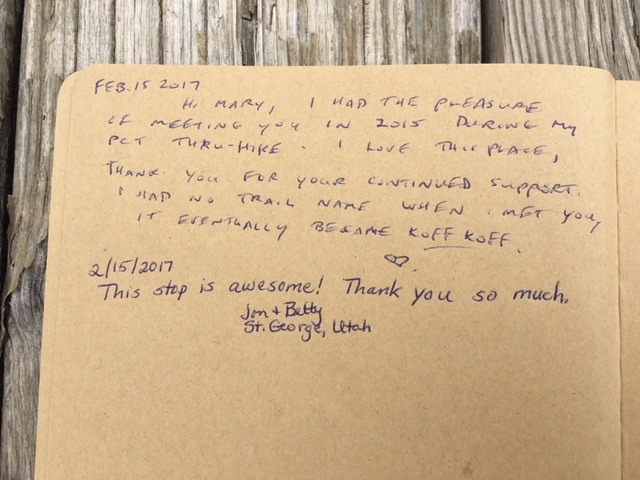 FEB. 15 2017
Hi MARY, I HAD THE PLEASURE
OF MEETING YOU IN 2015 DURING MY
PCT THRU-HIKE. I LOVE THIS PLACE,
THANK YOU FOR YOUR CONTINUED SUPPORT.
I HAD NO TRAIL NAME WHEN I MET YOU,
IT EVENTUALLY BECAME KOFF KOFF.
2/15/2017
This stop is awesome! Thank you so much.
Jon + Betty
St. George, Utah